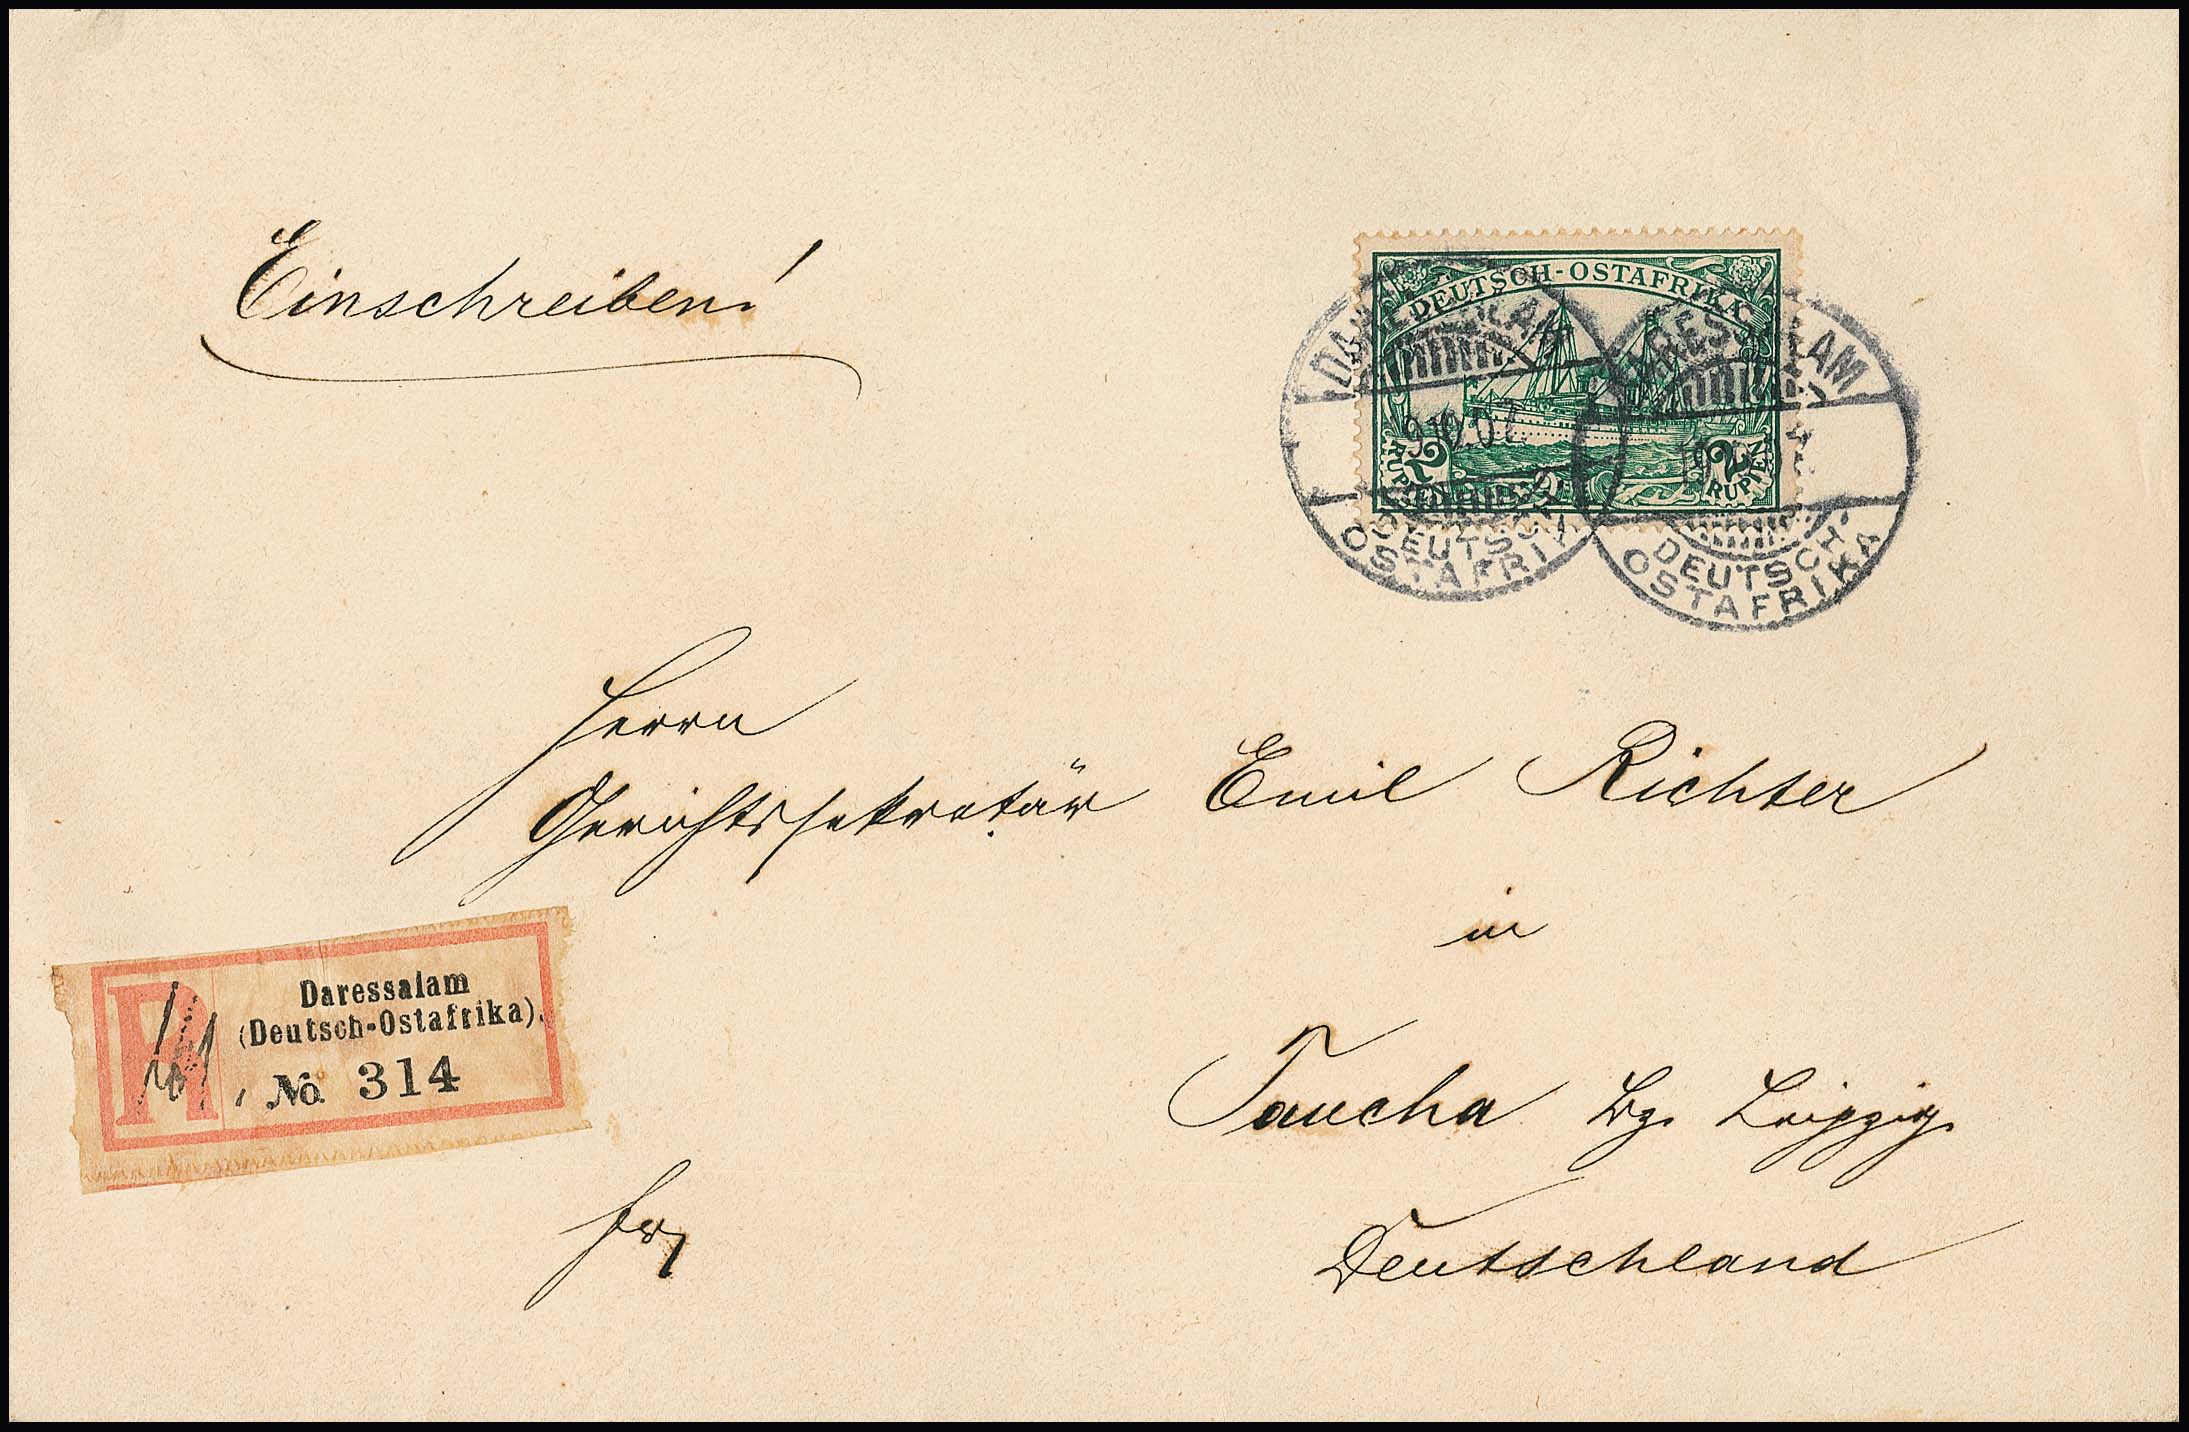 Einschreiben!
DEUTSCH-OSTAFRIKA
2 RUPIEN
2 RUPIEN
DARESSALAM
9.10.07
DEUTSCH-
OSTAFRIKA
DARESSALAM
DEUTSCH-
OSTAFRIKA
Herrn
Gerichtssekretär Emil Richter
in
Taucha Bz. Leipzig.
Deutschland
R
Daressalam
(Deutsch-Ostafrika).
No 314